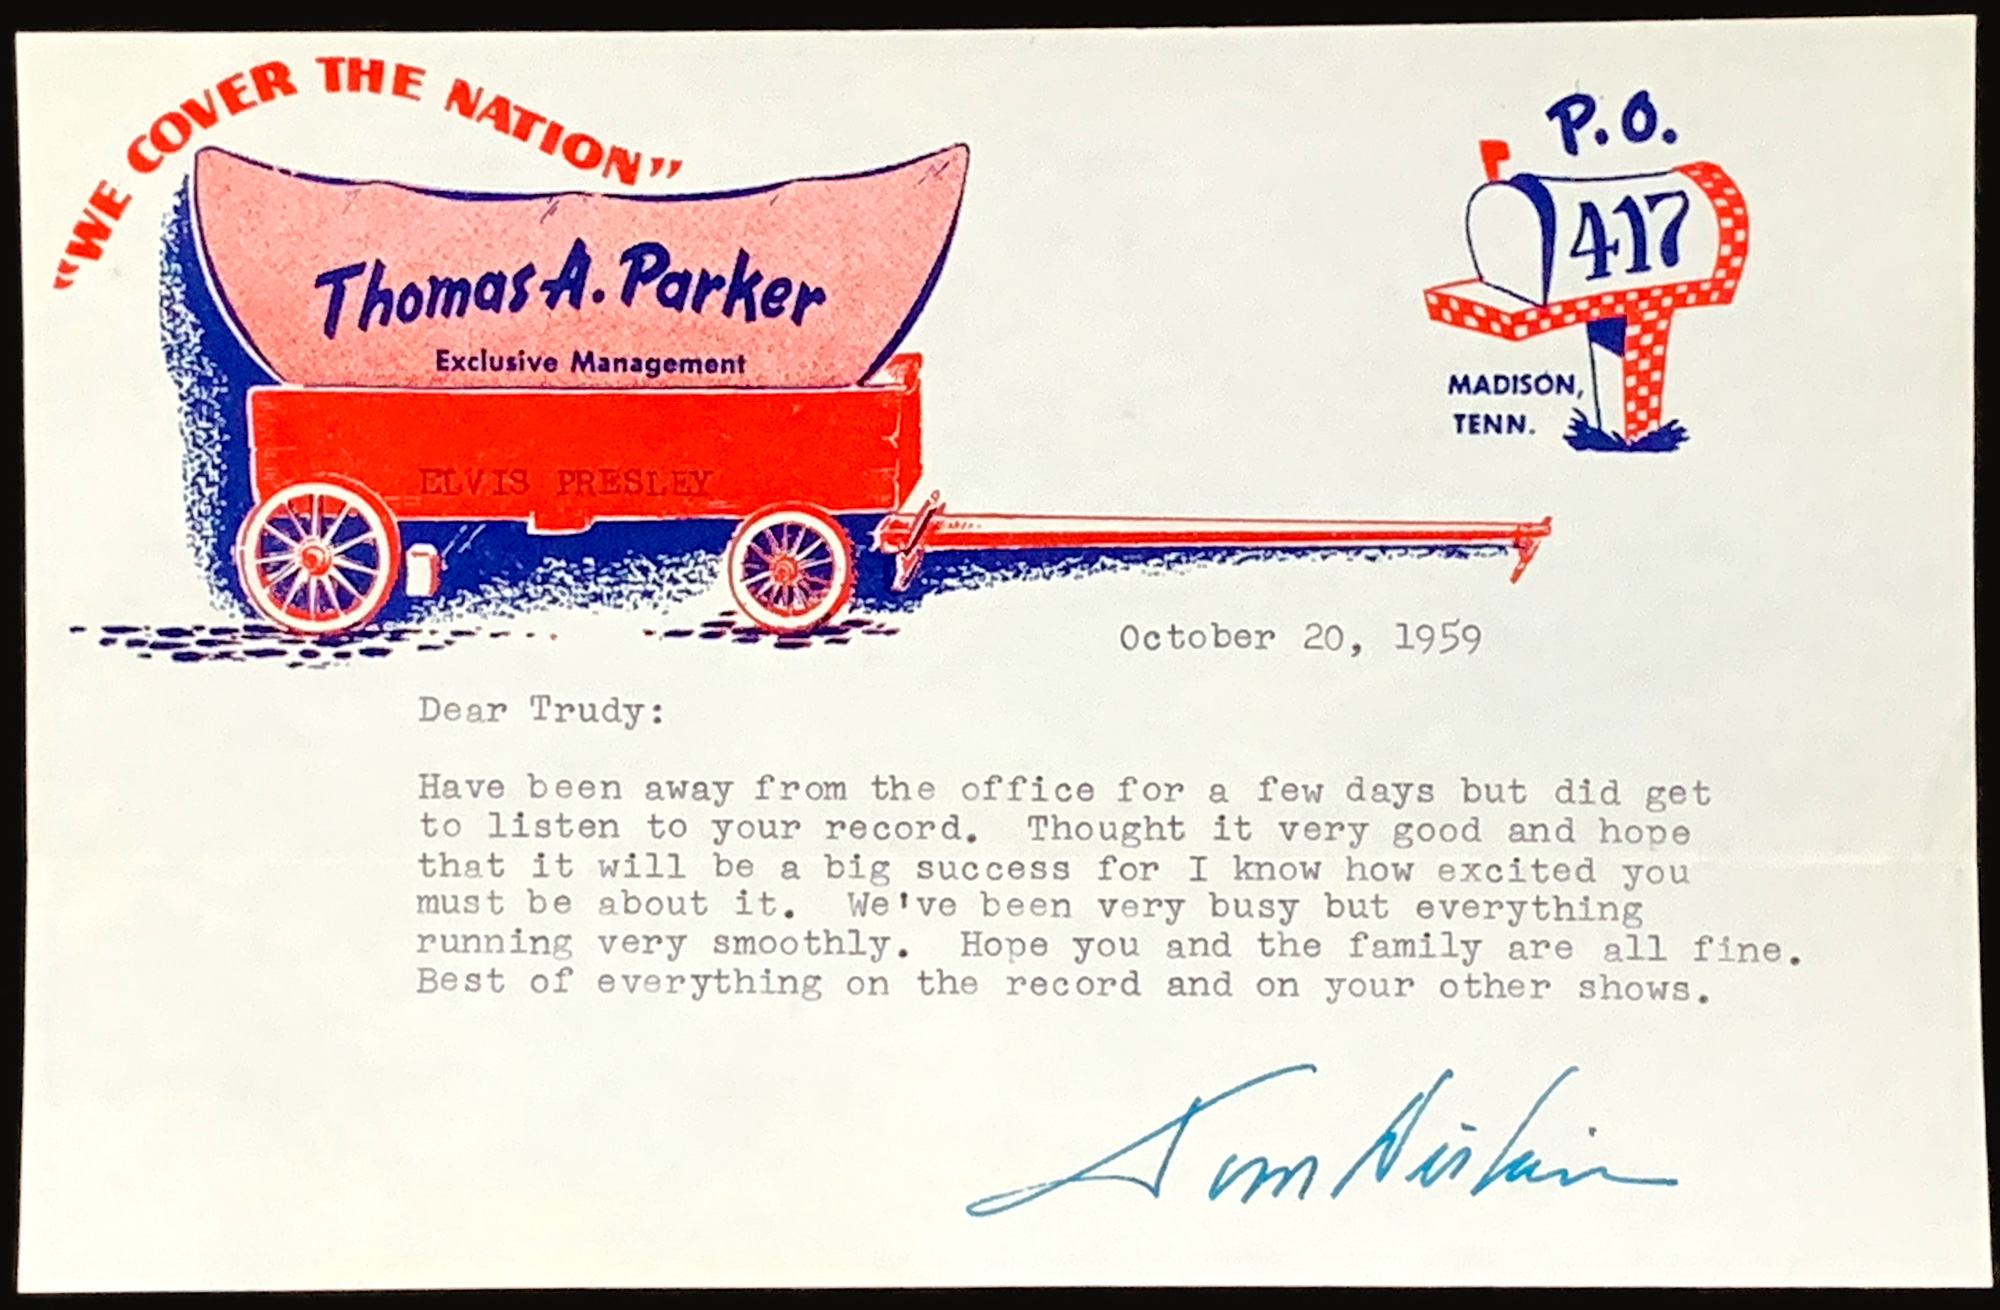 "WE COVER THE NATION"
Thomas A. Parker
Exclusive Management
ELVIS PRESLEY
P.O.
417
MADISON,
TENN.
October 20, 1959
Dear Trudy:
Have been away from the office for a few days but did get
to listen to your record.  Thought it very good and hope
that it will be a big success for I know how excited you
must be about it.  We've been very busy but everything
running very smoothly.  Hope you and the family are all fine.
Best of everything on the record and on your other shows.
Tom Diskin